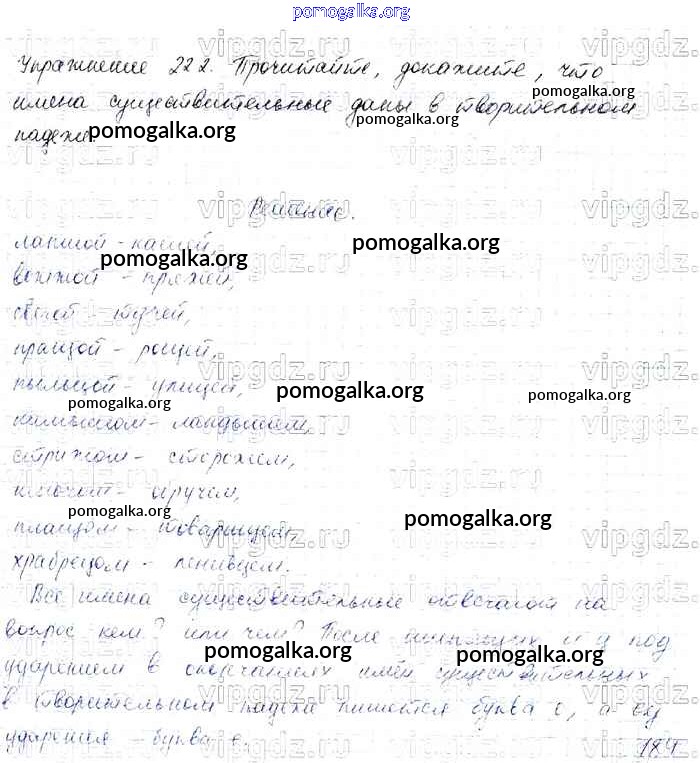 pomogalka.org
Упражнение 222. Прочитайте, докажите, что
имена существительные даны в творительном
падеже.
Решение.
лапшой - кашей,
вожжой - пряжей,
свечой - тучей,
пращой - рощей,
пыльцой - улицей,
камышом - ландышем,
стрижом - сторожем,
ключом - обручем,
плащом - товарищем,
храбрецом - ленивцем.
Все имена существительные отвечают на
вопрос кем? или чем? После шипящих и ц под
ударением в окончаниях имён существительных
в творительном падеже пишется буква о,
ударения - буква е.
184